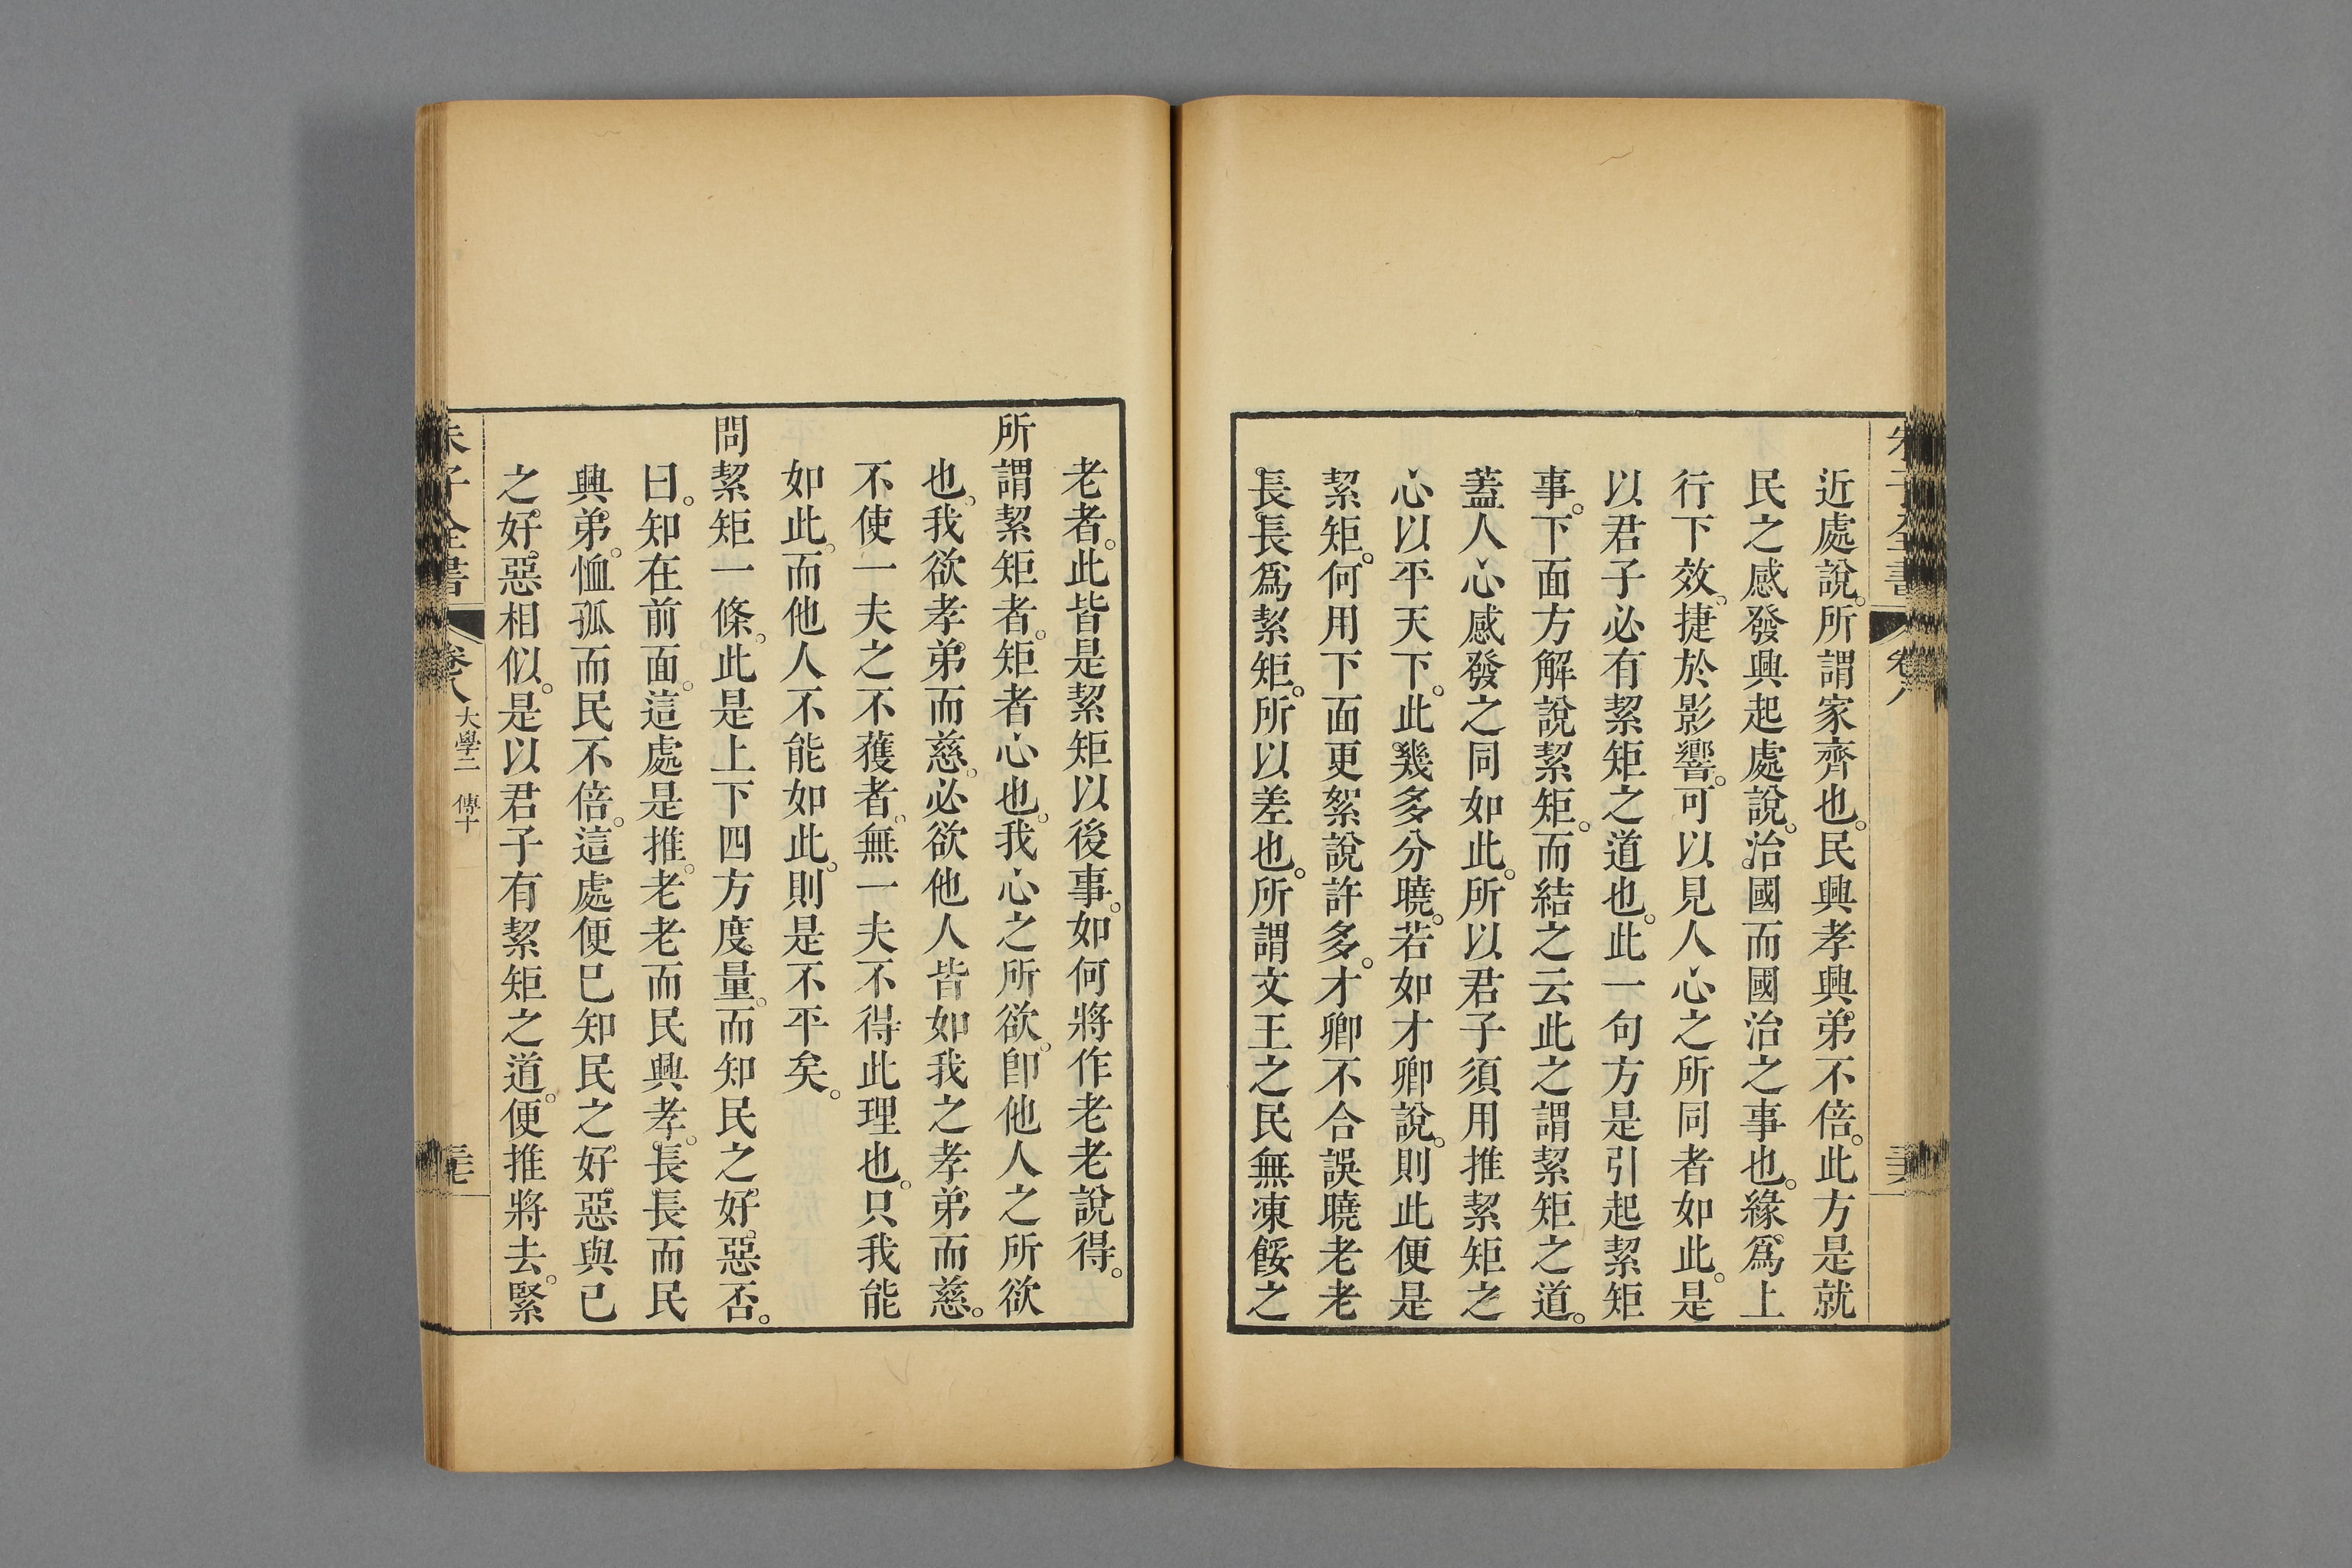 近處說。所謂家齊也。民興孝興弟不倍。此方是就
民之感發興起處說。治國而國治之事也。緣爲上
行下效。捷於影響。可以見人心之所同者如此。是
以君子必有絜矩之道也。此一句方是引起絜矩
事。下面方解說絜矩。而結之云此之謂絜矩之道。
蓋人心感發之同如此。所以君子須用推絜矩之
心以平天下。此幾多分曉。若如才卿說。則此便是
絜矩。何用下面更絮說許多。才卿不合誤曉老老
長長爲絜矩。所以差也。所謂文王之民無凍餒之
老者。此皆是絜矩以後事。如何將作老老說得。
所謂絜矩者。矩者心也。我心之所欲。卽他人之所欲
也。我欲孝弟而慈。必欲他人皆如我之孝弟而慈。
不使一夫之不獲者。無一夫不得此理也。只我能
如此。而他人不能如此。則是不平矣。
問絜矩一條。此是上下四方度量。而知民之好惡否。
曰。知在前面。這處是推。老老而民興孝。長長而民
興弟。恤孤而民不倍。這處便已知民之好惡與己
之好惡相似。是以君子有絜矩之道。便推將去。緊
朱子全書
卷八
大學二 傳十